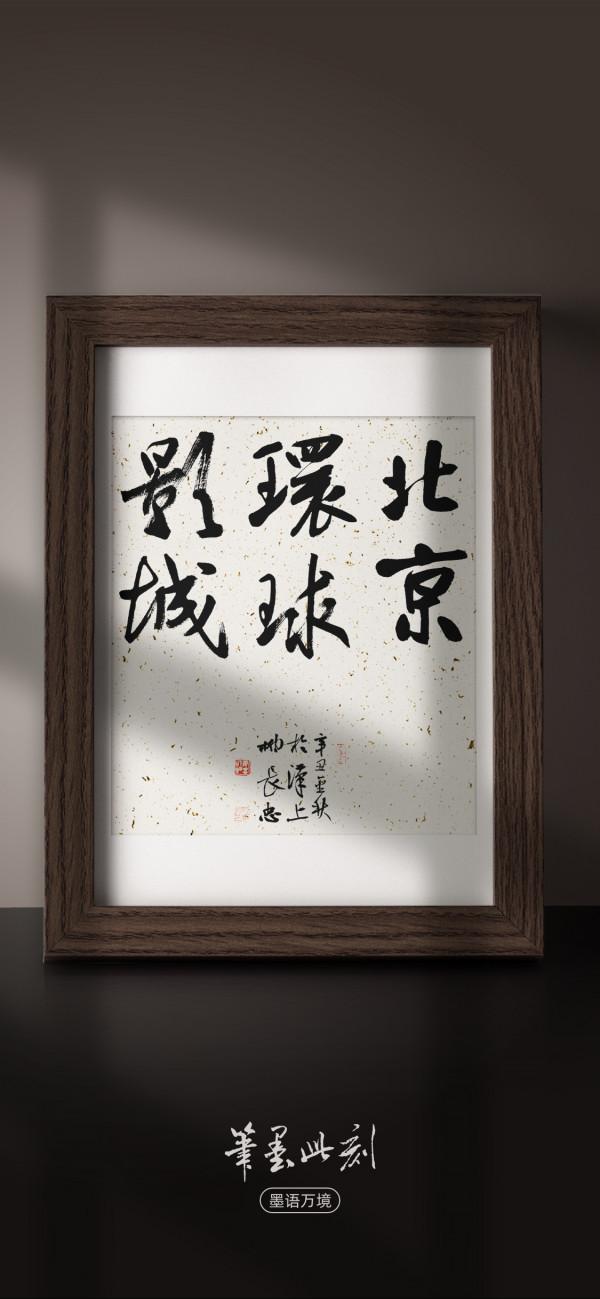 北京
環球
影城
辛丑金秋
於漢上
柳長忠
筆墨此刻
墨语万境